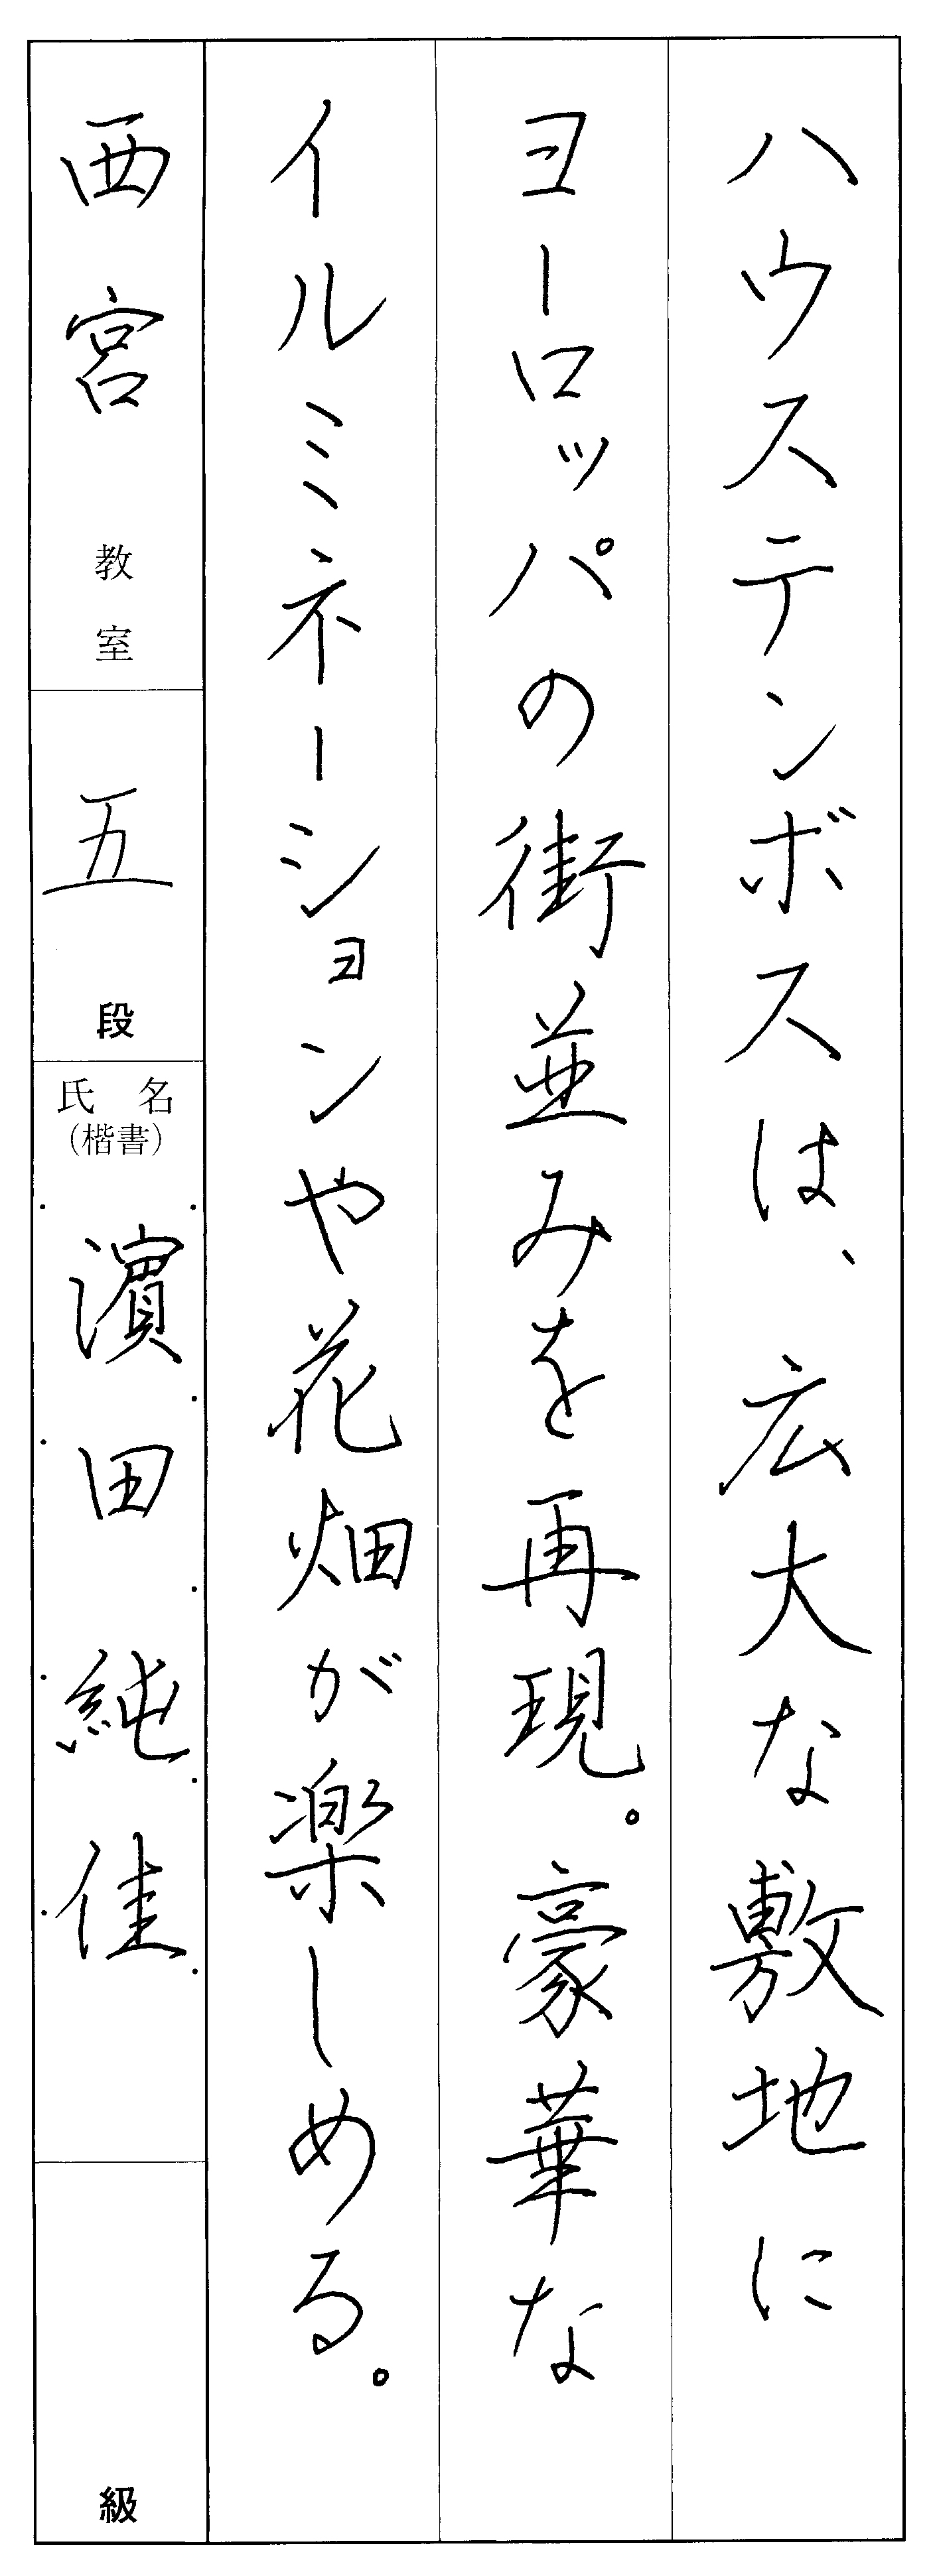 ハウステンボスは、広大な敷地に
ヨーロッパの街並みを再現。豪華な
イルミネーションや花畑が楽しめる。
西宮教室
五段
氏名
(楷書)
濱田純佳
級